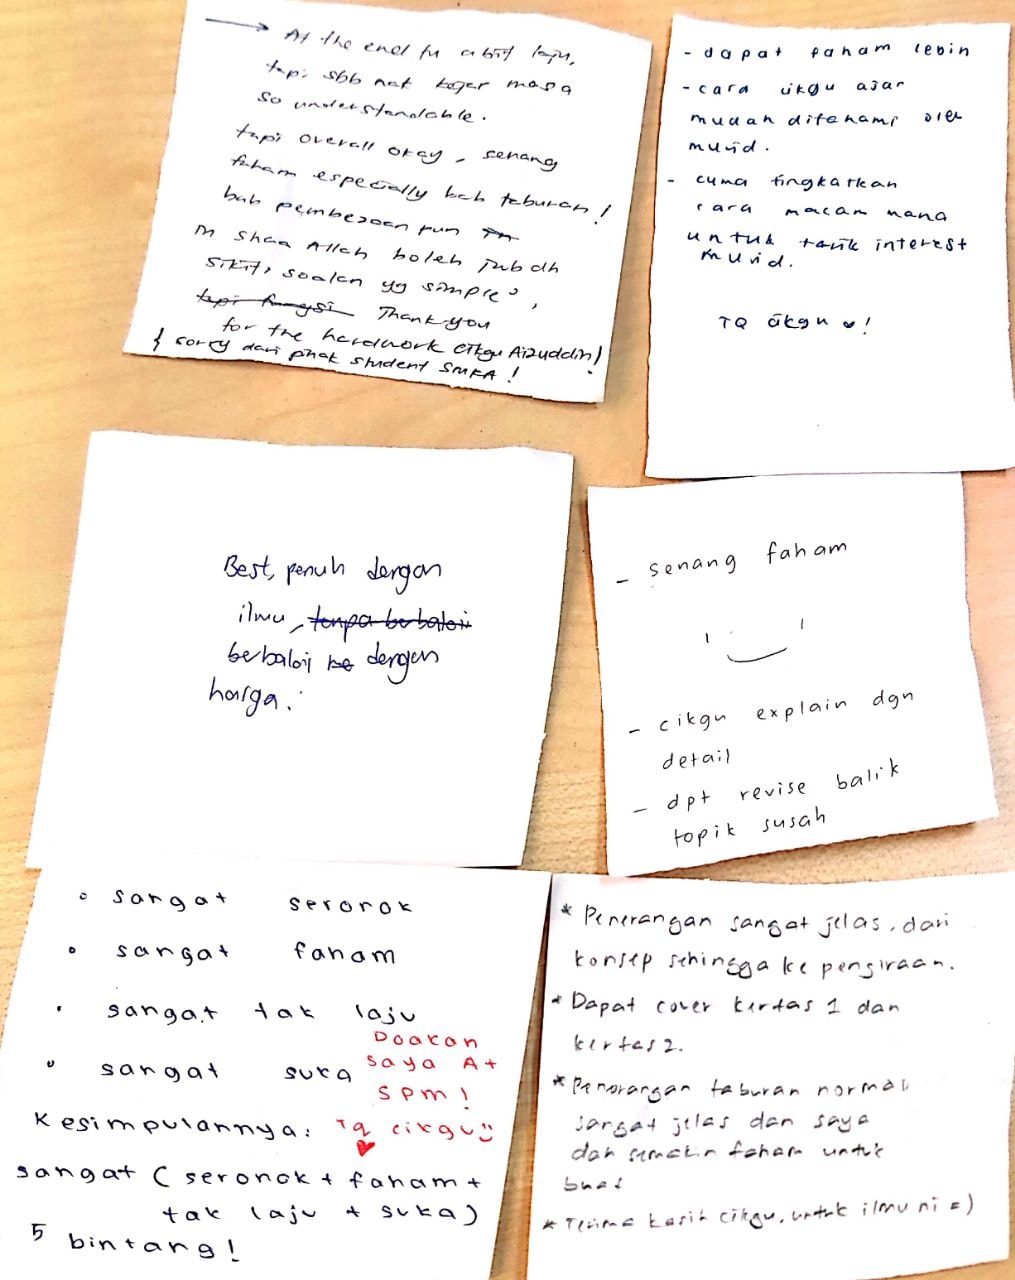 → At the end tu a bit laju,
tapi sbb nak kejar masa
so understandable.
tapi overall okay, senang
faham especially bab taburan!
bab pembezaan pun
in shaa Allah boleh jwb dh
sikit, soalan yg simple²,
tapi fungsi Thank you
for the hardwork cikgu Aizuddin!
& sorry dari pihak student SMKA!
- dapat faham lebih
- cara cikgu ajar
mudah difahami oleh
murid.
- cuma tingkatkan
cara macam mana
untuk tarik interest
murid.
TQ cikgu ♥!
Best, penuh dengan
ilmu, tanpa berbaloi
berbaloi ke dengan
harga.
- senang faham
- cikgu explain dgn
detail
- dpt revise balik
topik susah
• sangat seronok
• sangat faham
• sangat tak laju
• sangat suka
Doakan
saya A+
SPM!
Tq cikgu
♥
Kesimpulannya:
sangat (seronok + faham +
tak laju + suka)
5 bintang!
* Penerangan sangat jelas, dari
konsep sehingga ke pengiraan.
* Dapat cover kertas 1 dan
kertas 2.
* Penerangan taburan normal
sangat jelas dan saya
dah semakin faham untuk
buat
* Terima kasih cikgu, untuk ilmu ni =)